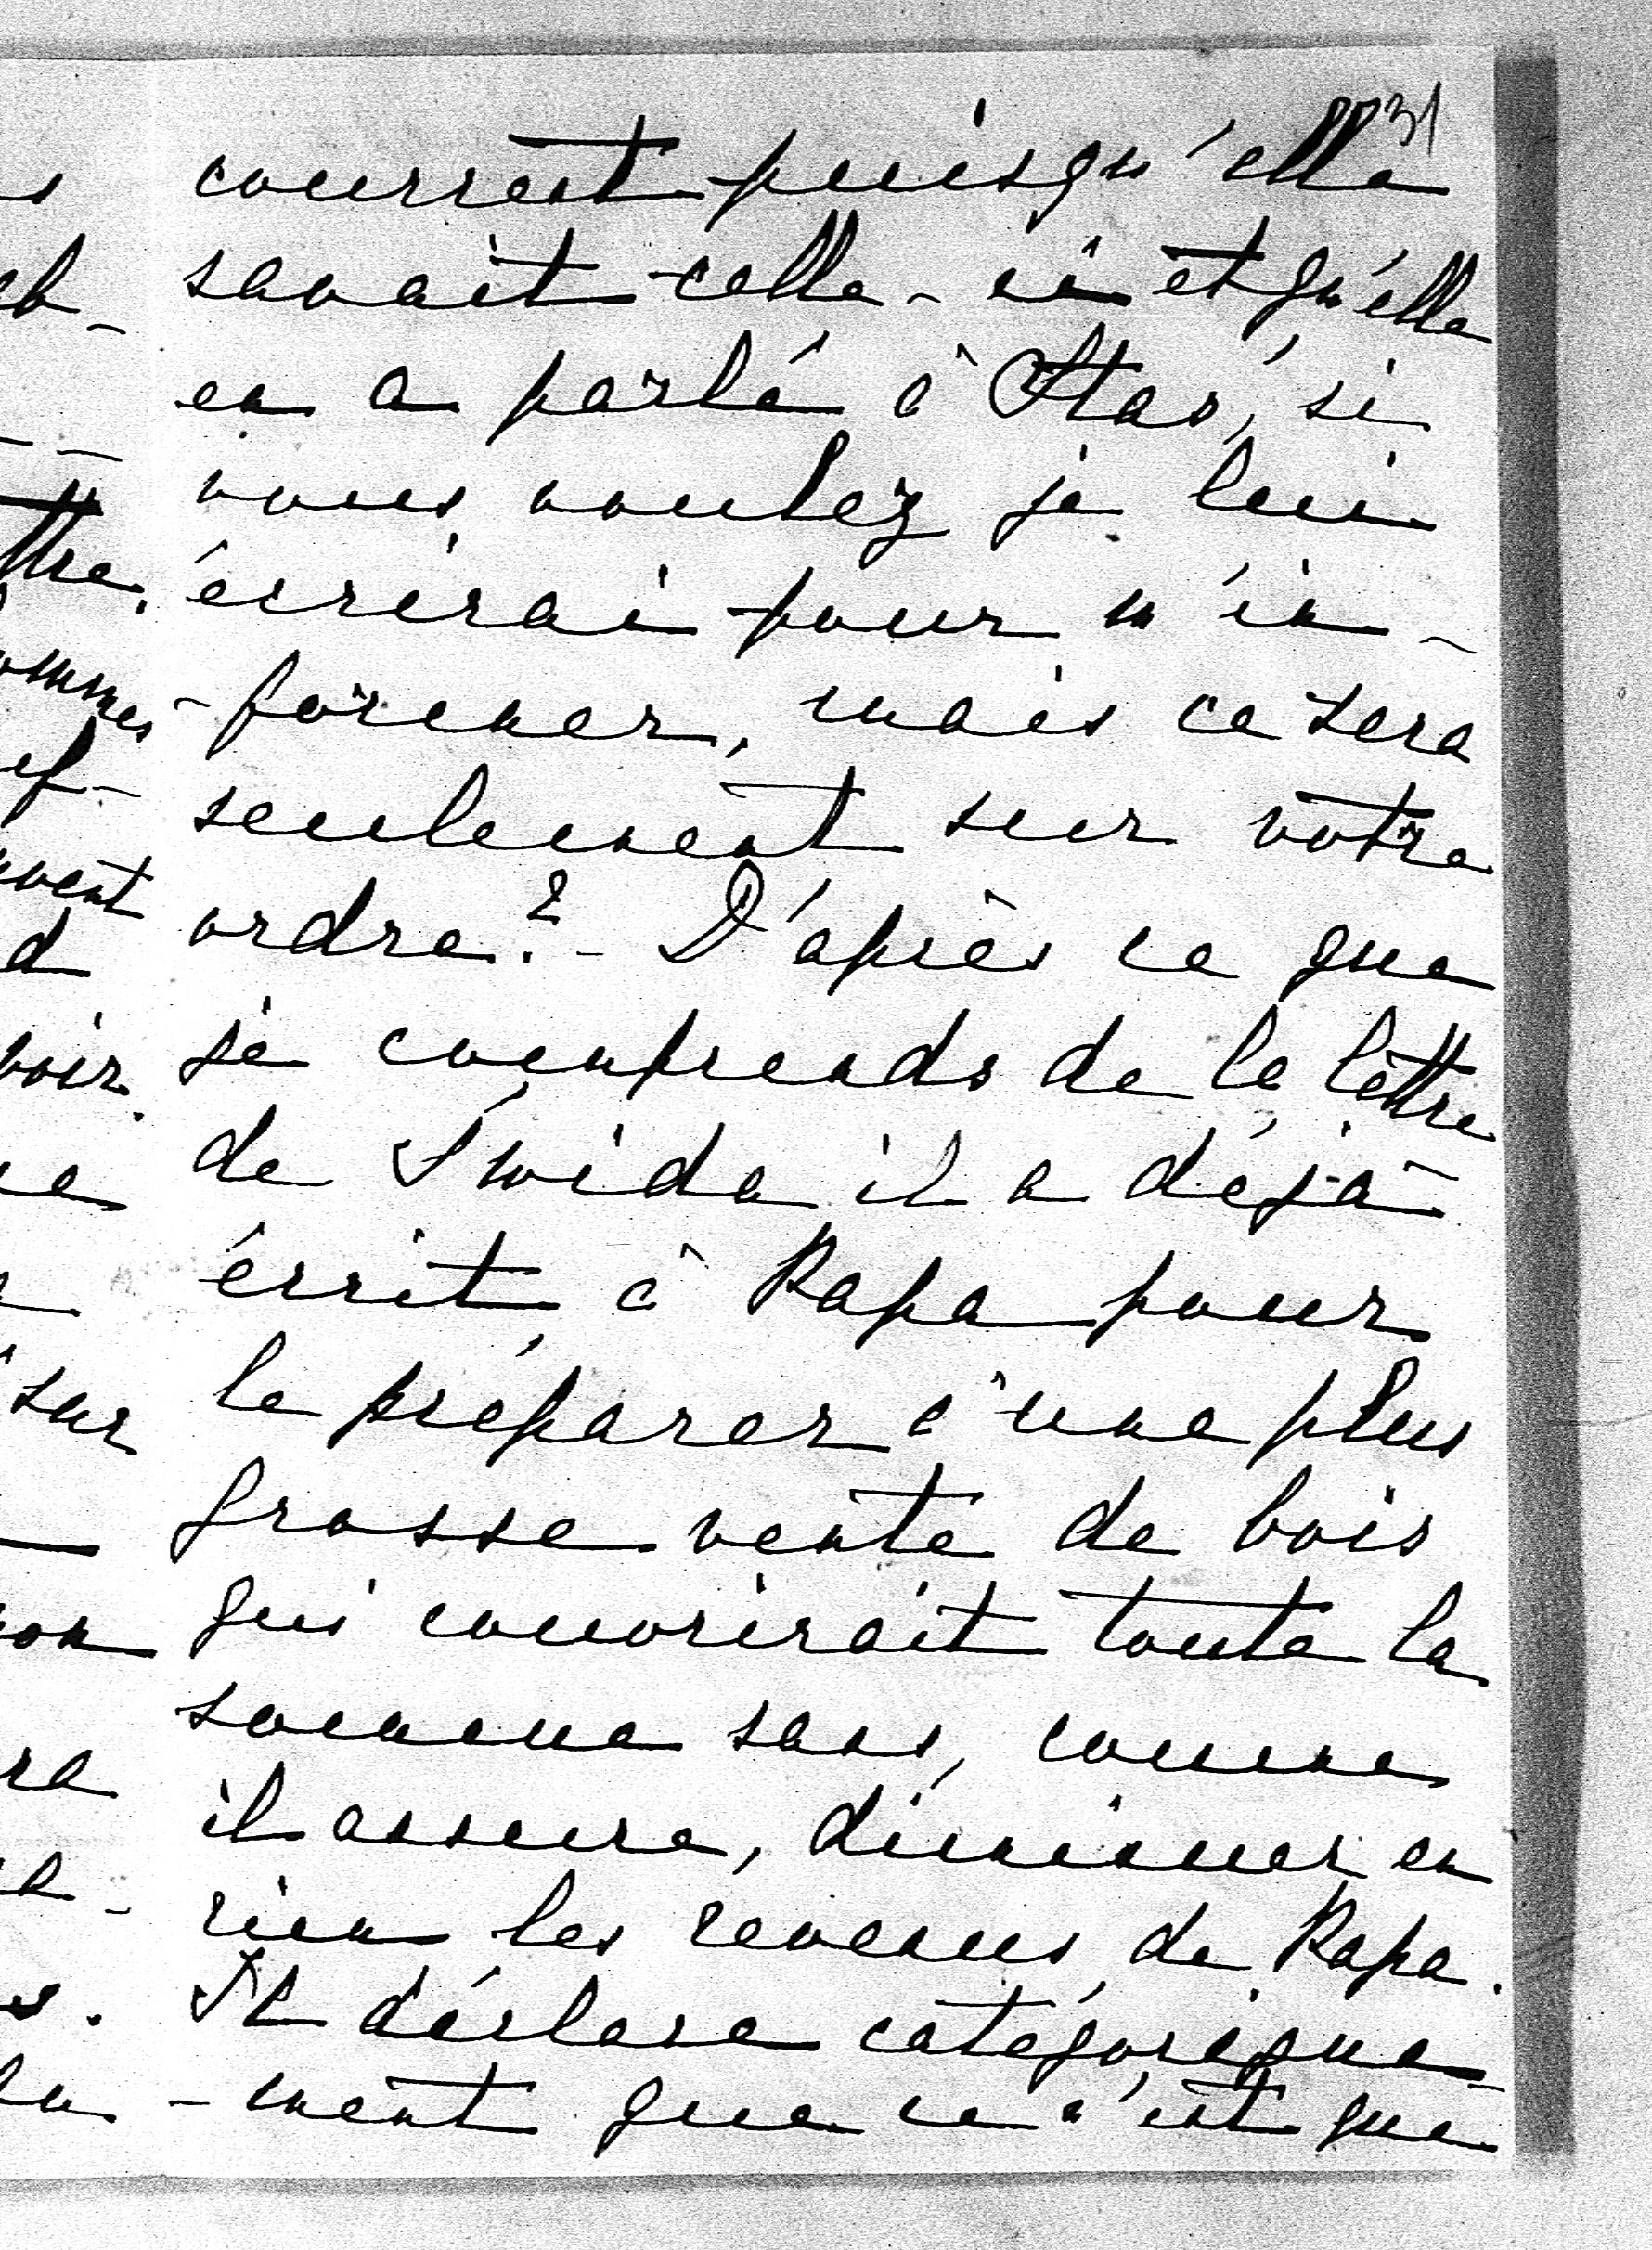 31
courrent puisqu'elle
savait celle-ci et qu'elle
en a parlé à Stas, si
vous voulez je lui
écrirai pour m'in-
-former, mais ce sera
seulement sur votre
ordre? - D'après ce que
je comprends de la lettre
de Swida il a déjà
écrit à Papa pour
le préparer à une plus
grosse vente de bois
qui couvrirait toute la
somme sans, comme
il assure, diminuer en
rien les revenus de Papa.
Il déclare catégorique-
-ment que ce n'est que